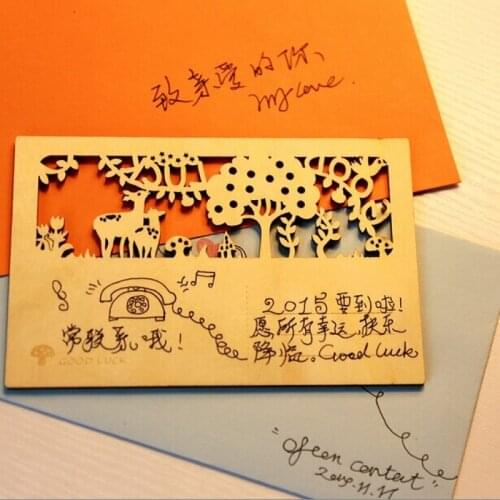 致亲爱的你、
my love.
2015要到啦!
愿所有幸运、快乐
降临。Good Luck
常联系哦!
GOOD LUCK
"often contact"